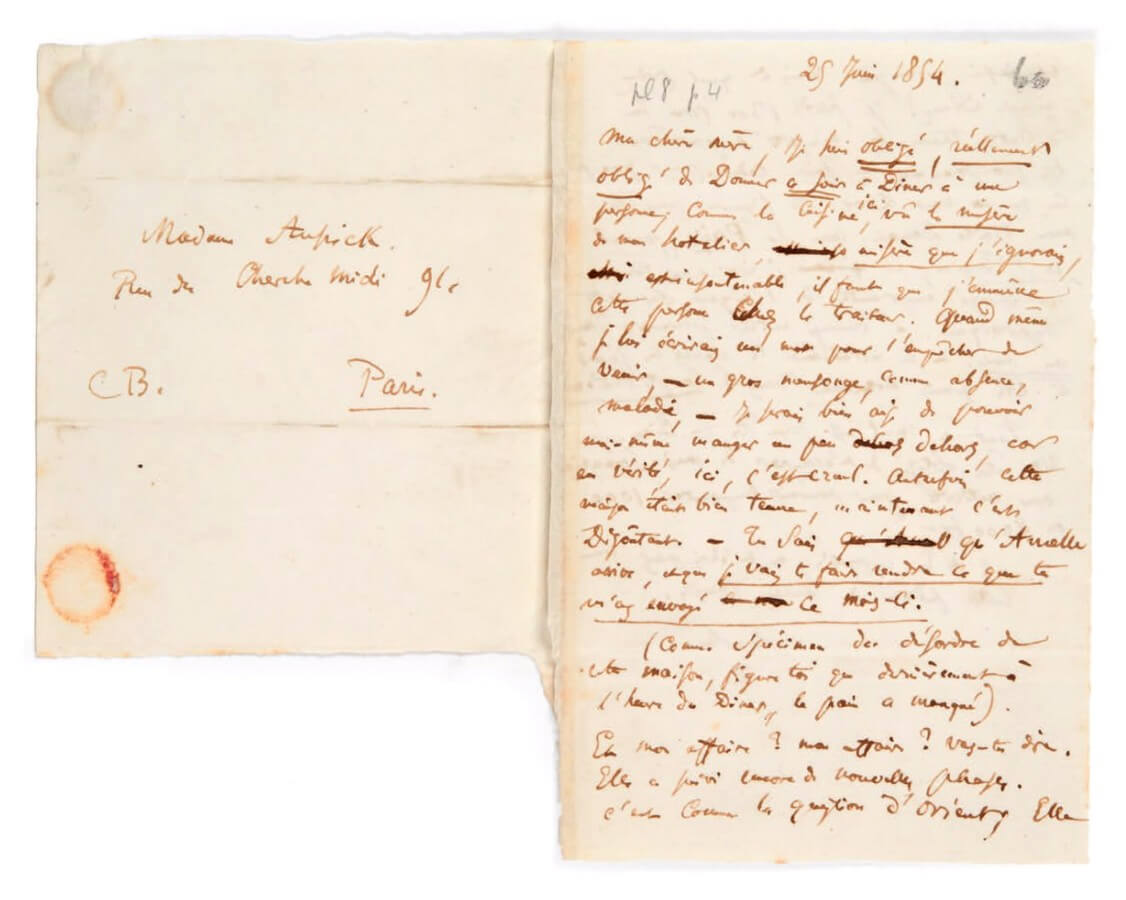 Madame Aupick.
Rue du Cherche midi 91.
C B.
Paris.
25 Juin 1854.
pl 8 p. 4
Ma chère mère, Je suis obligé, réellement
obligé de Donner ce soir à Diner à une
personne, Comme la Cuisine ici, vû la misère
de mon hotelier, misère que j'ignorais,
est insoutenable, il faut que j'emmène
cette personne Chez le traiteur. Quand même
je lui écrirais un mot pour l'empêcher de
venir, — un gros mensonge, comme absence,
maladie, — Je serais bien aise de pouvoir
moi-même manger un peu dehors Dehors, car
en vérité, ici, c'est cruel. Autrefois cette
maison était bien tenue, maintenant c'est
Dégoûtant. — Tu Sais qu'Ancelle
arrive, et que je vais te faire rendre ce que tu
m'as envoyé ce mois-ci.
(Comme Spécimen du désordre de
cette maison, figure toi que dernièrement à
l'heure du Diner, le pain a manqué).
Et mon affaire ? mon affaire ? vas-tu dire.
Elle a suivi encore de nouvelles phases.
c'est Comme la question d'Orient, Elle